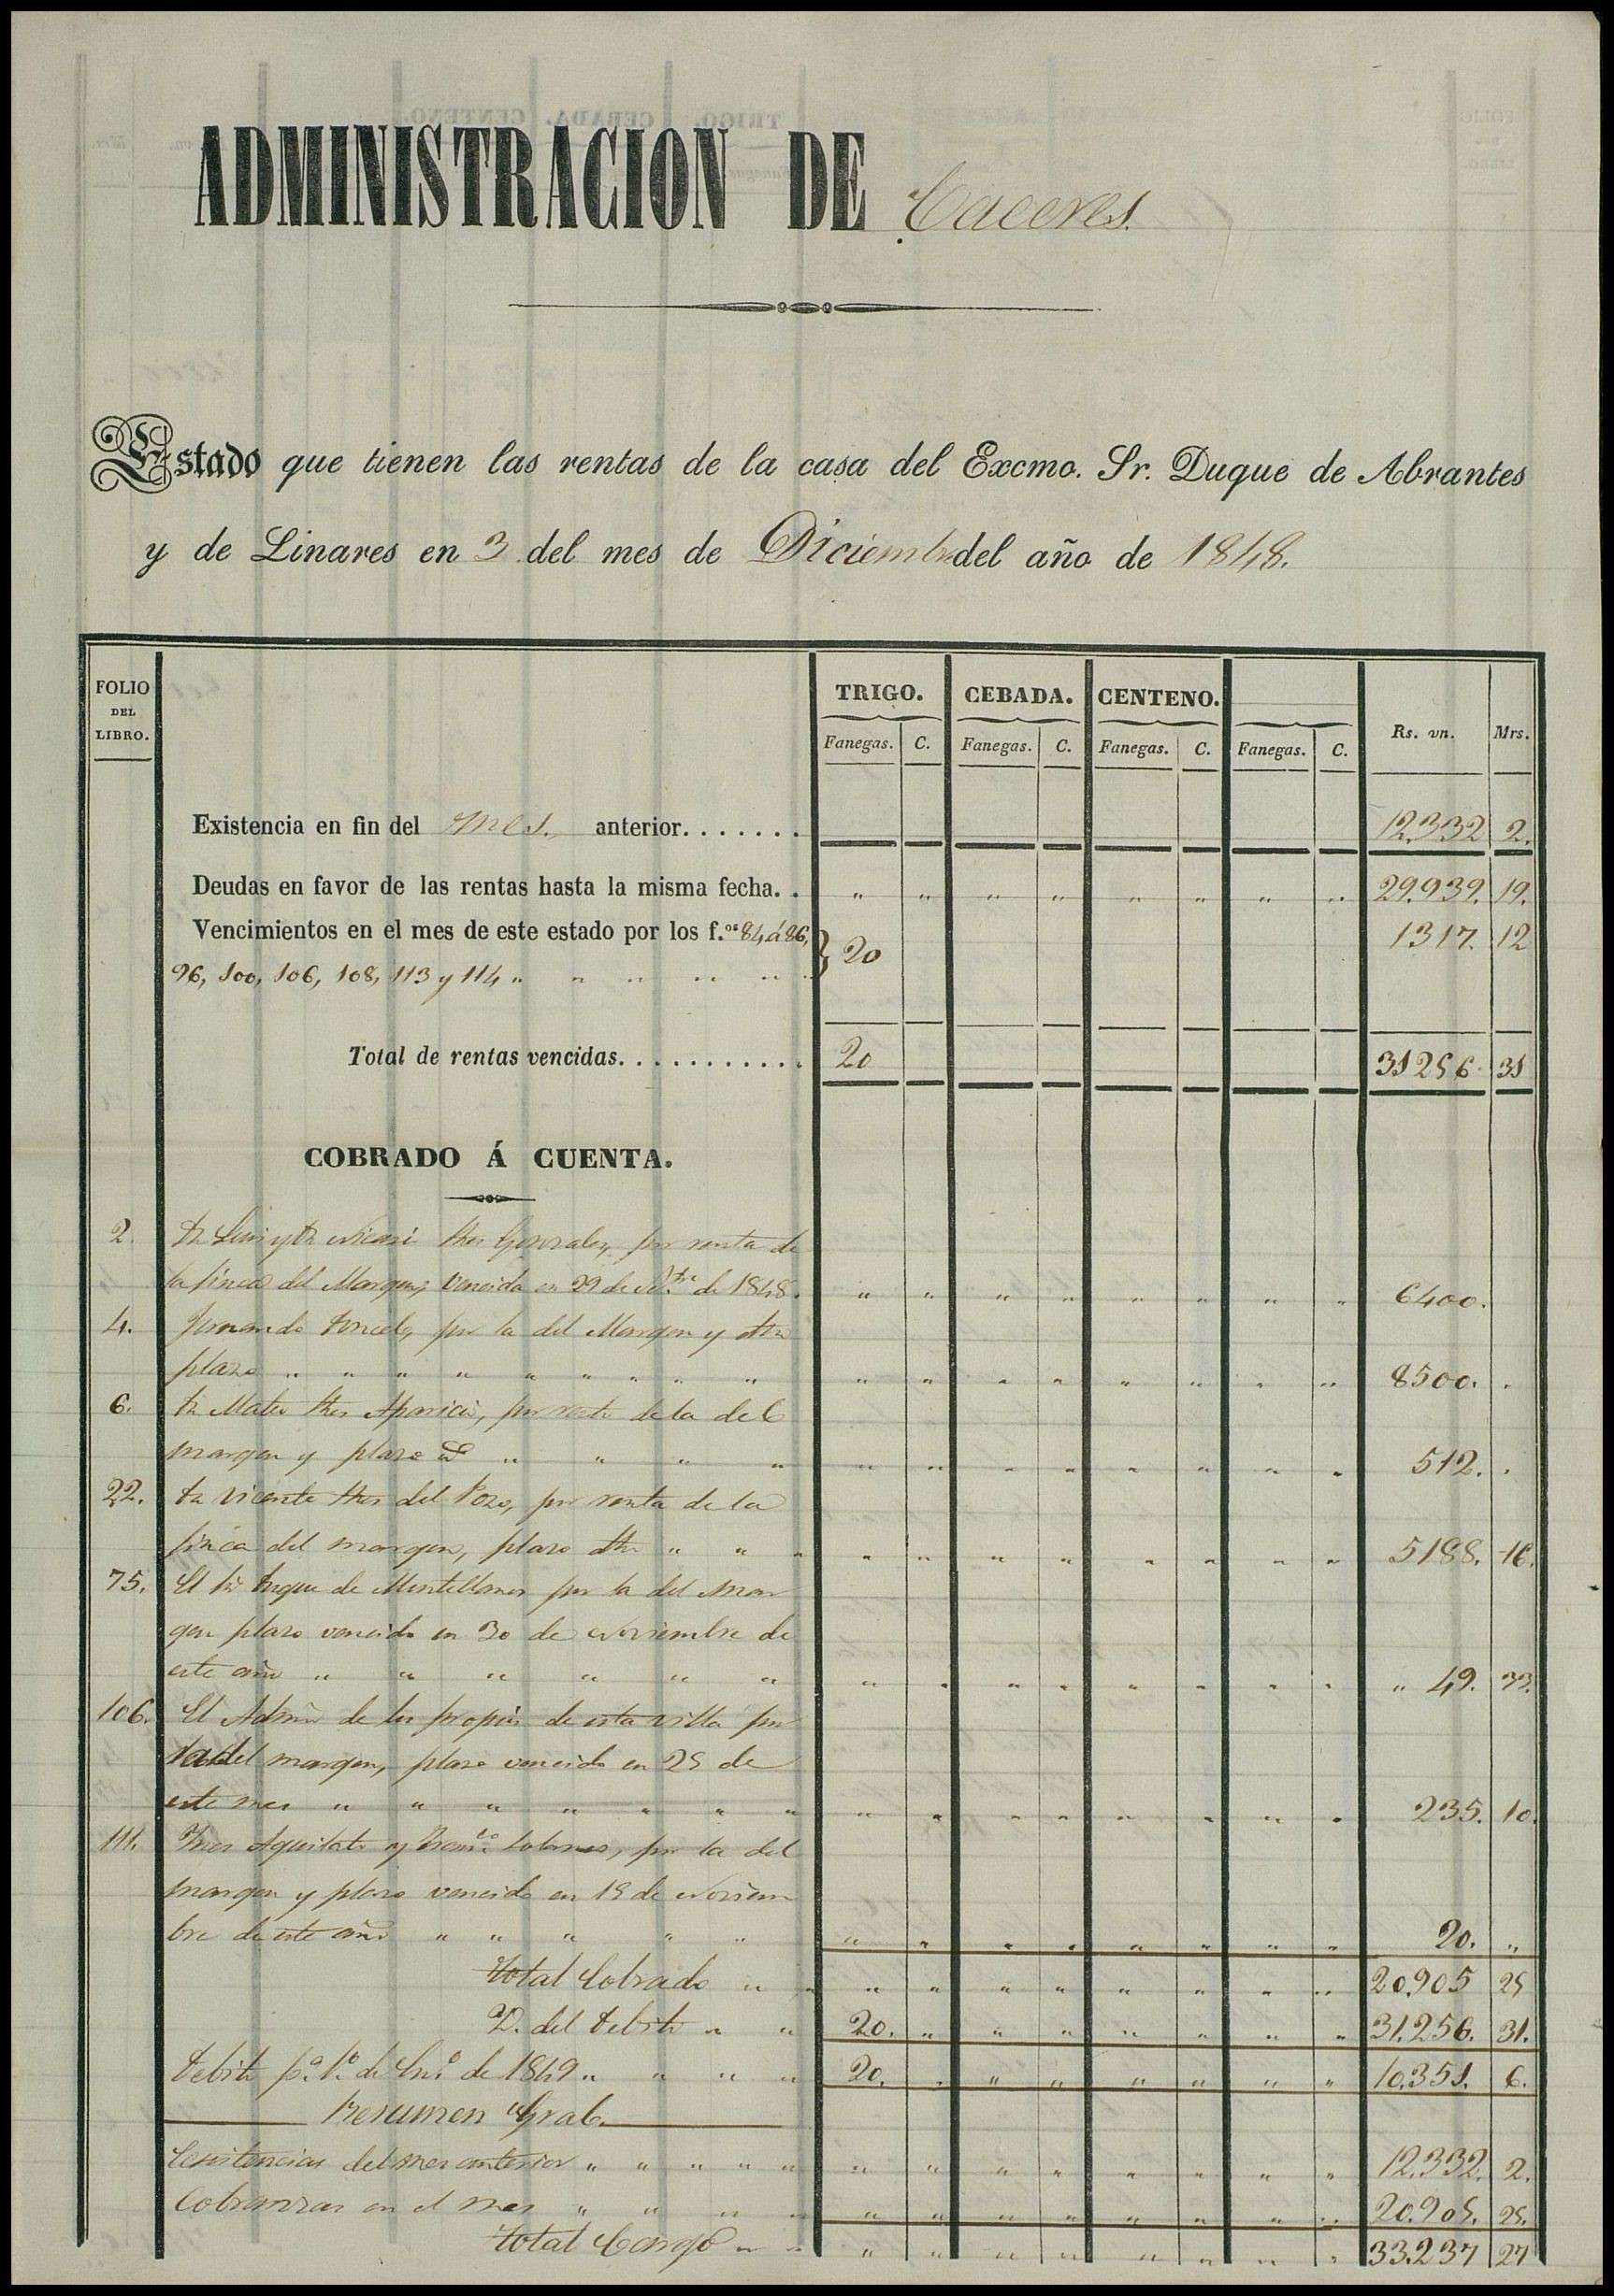 ADMINISTRACION DE Caceres.
Estado que tienen las rentas de la casa del Excmo. Sr. Duque de Abrantes
y de Linares en 3 del mes de Diciembre del año de 1848.
FOLIO DEL LIBRO. TRIGO. CEBADA. CENTENO. Rs. vn. Mrs.
Fanegas. C. Fanegas. C. Fanegas. C. Fanegas. C.
Existencia en fin del mes. anterior....... 12.332 2.
Deudas en favor de las rentas hasta la misma fecha. . " " " " " " " " 29.939. 19.
Vencimientos en el mes de este estado por los f.os 84 á 86, 20 1317. 12
96, 100, 106, 108, 113 y 114 " " " " " "
Total de rentas vencidas........... 20 31256 31
COBRADO Á CUENTA.
2. Gonzalez, por renta de
la finca del Margen, vencida en 29 de de 1848. " " " " " " " " 6400.
4. por la del Margen y
plazo " " " " " " " " " 8500. .
6. Aparicio, por renta de la del
margen y plazo " " " " 512. .
22. Vicente del Pozo, por renta de la
finca del margen, plazo " " " 5188. 16.
75. El Duque de Montellano por la del Mar
gen plazo vencido en 30 de Noviembre de
este año " " " " " " " 49. 33.
106. El Admor de los propios de esta villa por
la del margen, plazo vencido en 25 de
este mes " " " " " " " 235. 10.
111. y por la del
margen y plazo vencido en 15 de Noviem
bre de este año " " " " " 20. "
Total Cobrado " " 20.905 25
Y. del Debito " " 20. " " " " " " " 31.256. 31.
Debito p.a 1.o de En.o de 1849 " " " " 20. " " " " " " " 10.351. 6.
Resumen Gral.
Existencias del mes anterior " " " " " 12.332. 2.
Cobranzas en el mes " " " " 20.905. 25.
Total Cargo " " 33.237 27